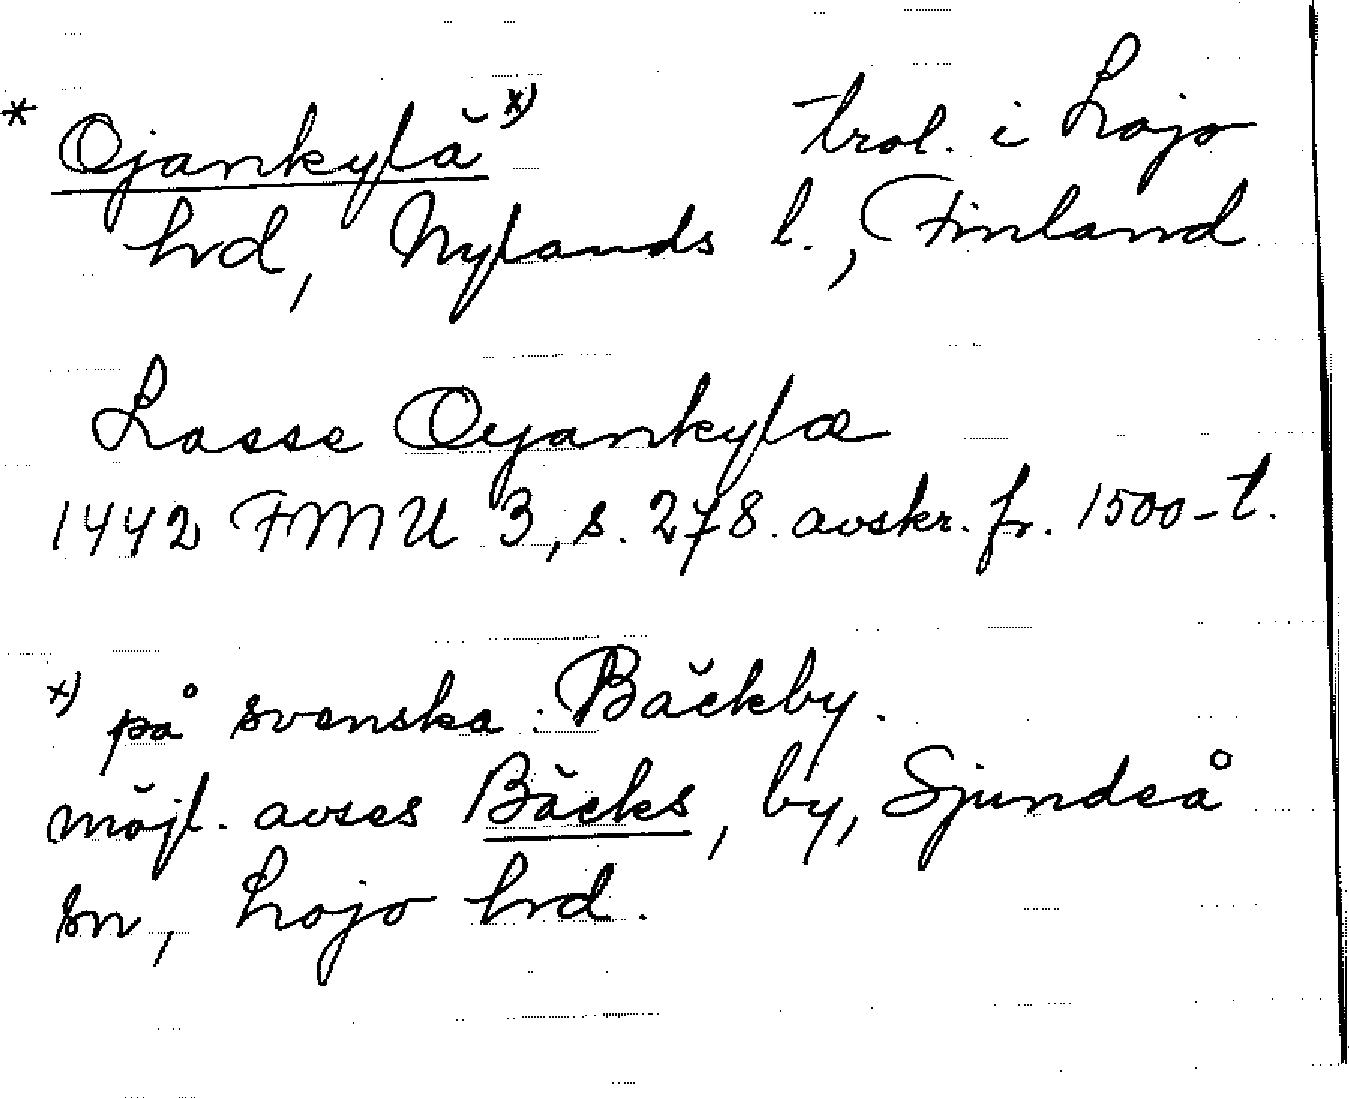 * Ojankylä x) trol. i Lojo
hrd, Nylands l., Finland
Lasse Oyankylæ
1442 FMU 3, s. 278. avskr. fr. 1500-t.
x) på svenska: Bäckby.
möjl. avses Bäcks, by, Sjundeå
sn, Lojo hrd.